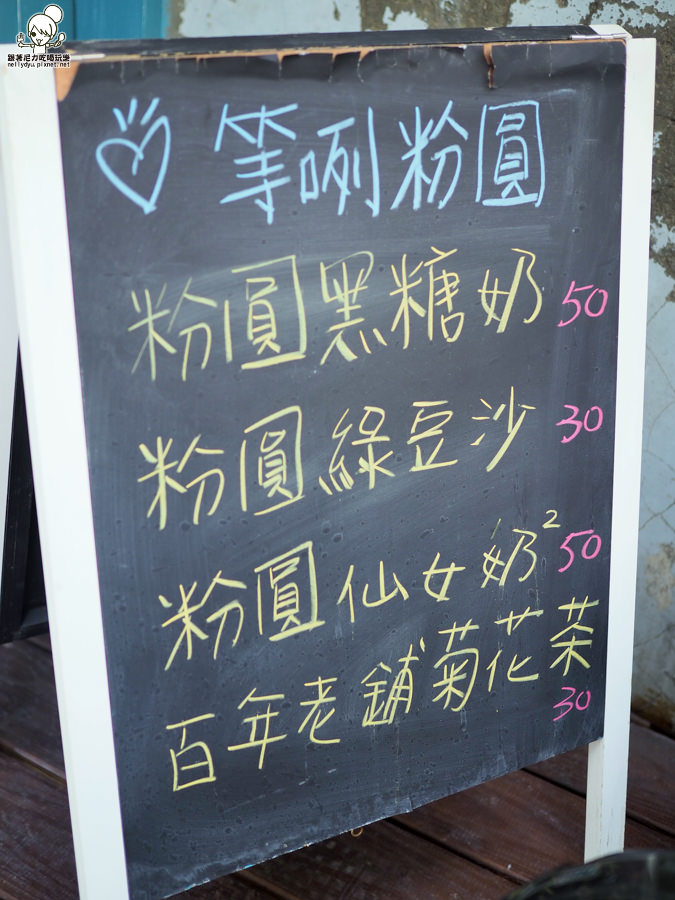 跟著尼力吃喝玩樂
nellydyu.pixnet.net
等咧粉圓
粉圓黑糖奶 50
粉圓綠豆沙 30
粉圓仙女奶² 50
百年老舖菊花茶 30